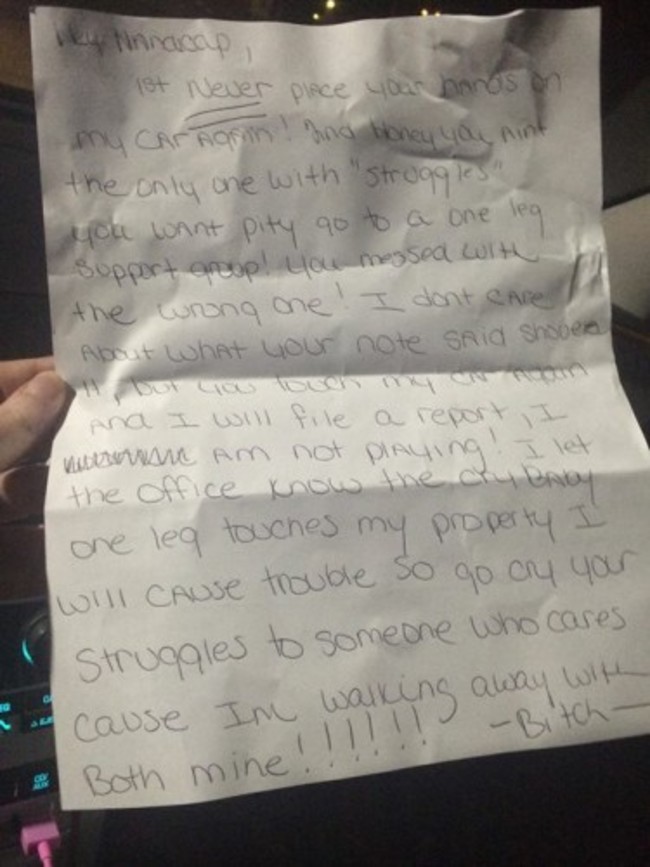 Hey Handicap,
1st Never place your hands on
my car again! 2nd Honey you aint
the only one with "struggles"
you want pity go to a one leg
support group! you messed with
the wrong one! I dont care
About what your note said shove
it, but you touch my car again
and I will file a report, I
am not playing! I let
the office know the cry baby
one leg touches my property I
will cause trouble so go cry your
struggles to someone who cares
cause Im walking away with
Both mine!!!!!!
-Bitch-
CD/
AUX